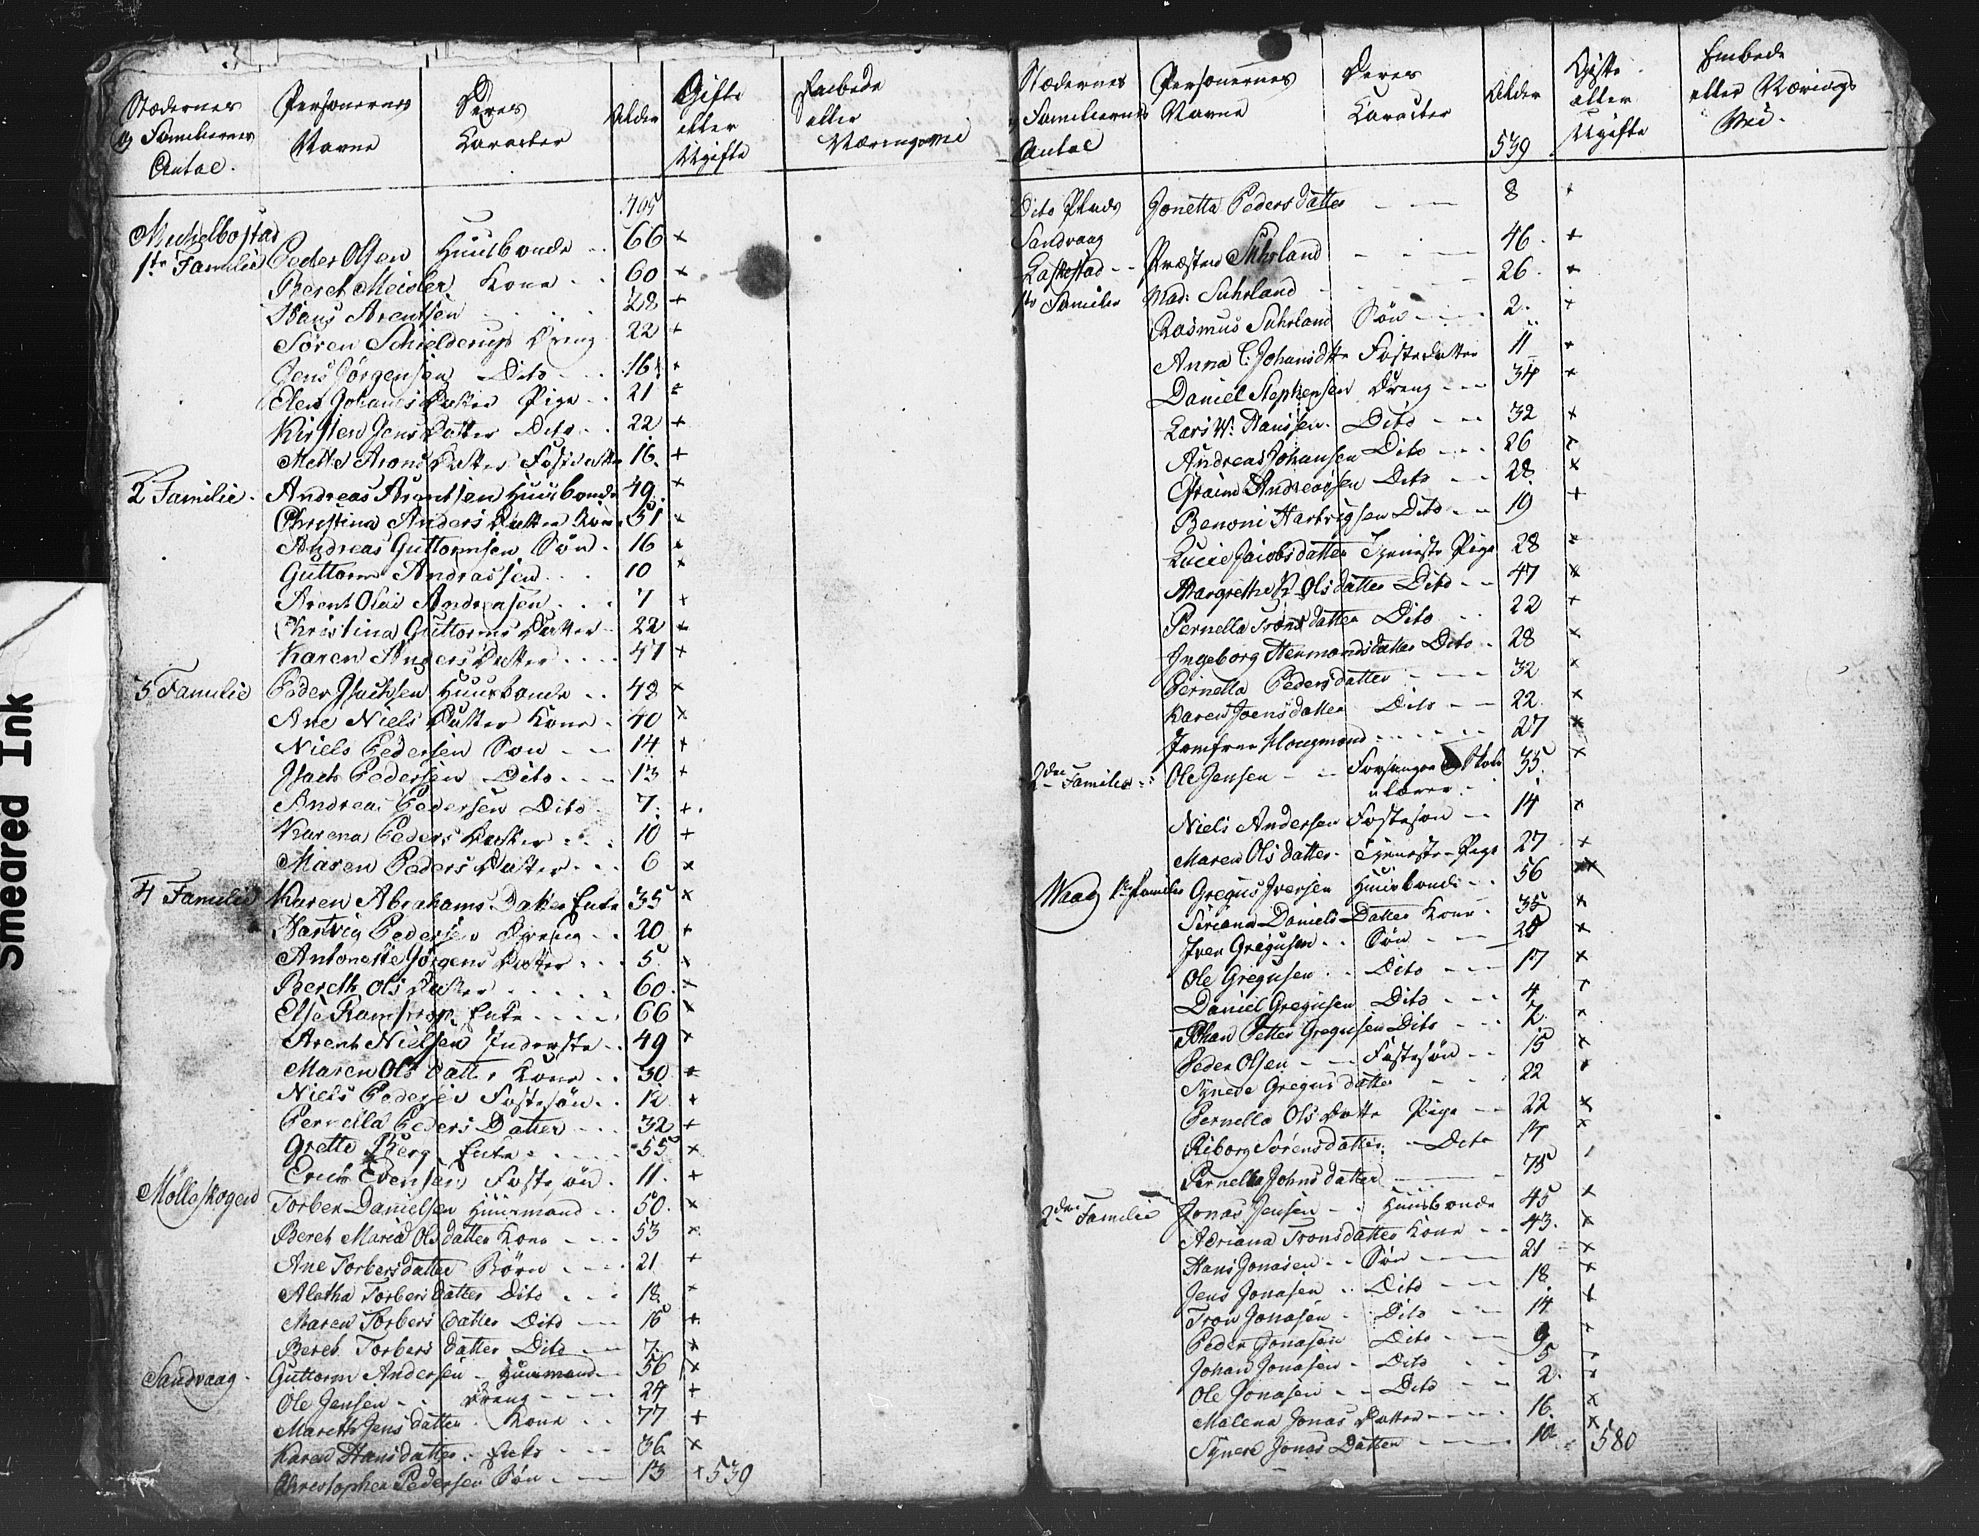 Stædernes og Familiernes Antal. | Personernes Navne | Deres Karacter | Alder | Gifte eller Ugifte | Embede eller Næringsvei
495
Michelbostad
1te Familie Peder Olsen Huusbonde 66 x
Bereth Meisler Kone 60 x
Hans Arentsen 28 +
Søren Schielderup Dreng 22 +
Jens Jörgensen Dito 16 +
Elen Johans Datter Pige 21
Kirsten Jens Datter Dito 22 +
Mette Arons Datter Fosterdatter 16 +
2 Familie Andreas Arentsen Huusbonde 49 x
Christina Anders Datter Kone 51 x
Andreas Guttormsen Søn 16 x
Guttorm Andreassen 10 x
Arent Olai Andreasen 7 +
Christina Guttorms Datter 22 +
Karen Anders Datter 47 +
3 Familie Peder Isachsen Huusbonde 48 x
Ane Niels Datter Kone 40 x
Niels Pedersen Søn 14 +
Isach Pedersen Dito 13 +
Andreas Pedersen Dito 7 +
Karena Peders Datter 10 +
Maren Peders Datter 6 x
4 Familie Karen Abrahams Datter Enke 35 x
Hartvig Pedersen Dreng 20 +
Antonette Jörgens Datter 5 x
Bereth Ols Datter 60
Else Ramstrop Enke 66 x
Arent Nielsen Inderste 49 x
Maren Ols Datter Kone 30 +
Niels Pedersen Fostesøn 12 +
Pernella Peders Datter 32 +
Grette Berg Enke 55 x
Erich Evensen Fostesøn 11 +
Mølleskogen Torber Danielsen Huusmand 50 x
Bereth Maria Olsdatter Kone 53 x
Ane Torbersdatter Börn 21 +
Aletha Torbersdatter Dito 18 x
Maren Torbers Datter Dito 16 +
Bereth Torbers Datter Dito 7 x
Sandvaag Guttorm Andersen Huusmand 56 x
Ole Jensen Dreng 24 +
Mareth Jensdatter Kone 77 +
Karen Hansdatter Enke 36 x
Christopher Pedersen Søn 13 + 539
Stædernes og Familiernes Antal | Personernes Navne | Deres Karacter | Alder | Gifte eller Ugifte | Embede eller Nærings Vei.
539
Dito Plads Jonetta Pedersdatter 8 +
Sandvaag
Laskestad Præsten Suhrland 46 +
1te Familie Mad: Suhrland 26 +
Rasmus Suhrland Søn 2 +
Anna C. Johansdtr Fostedatter 11 +
Daniel Stephensen Dreng 34 x
Lars W. Hanssen Dito 32 x
Andreas Johansen Dito 26 x
Efraim Andreasen Dito 28 x
Benoni Hartvigsen Dito 19 +
Lucie Jacobsdatter Tieneste Pige 28 x
Margrethe K Olsdatter Dito 47 x
Pernella Tronsdatter Dito 22 +
Ingeborg Hermandsdatter Dito 28 x
Pernella Pedersdatter 32 x
Karen Joensdatter Dito 22 x
Jomfrue Hougmand 27 x
2den Familie Ole Jensen Forsanger Skole 35 x
lærer
Niels Andersen Fostesøn 14 x
Maren Olsdatter Tieneste-Pige 27 x
Waag 1te Familie Gregus Iversen Huusbonde 56 x
Siriana Daniels Datter Kone 35 x
Iver Gregusen Søn 20 x
Ole Gregusen Dito 17 x
Daniel Gregusen Dito 4 +
Johan Petter Gregusen Dito 2
Peder Olsen Fostesøn 15 x
Synede Gregusdatter 22 +
Pernella Ols Datter Pige 22 x
Riborg Sörensdatter Dito 17 x
Pernella Johnsdatter 75
2den Familie Jonas Jensen Huusbonde 45 x
Adriana Tronsdatter Kone 43 x
Hans Jonasen Søn 21 x
Jens Jonasen Dito 18 x
Tron Jonasen Dito 14 +
Peder Jonasen Dito 9
Johan Jonasen Dito 5
Ole Jonasen Dito 2
Malena Jonas Datter 16 x
Synere Jonas Datter 10 x 580
Smeared Ink